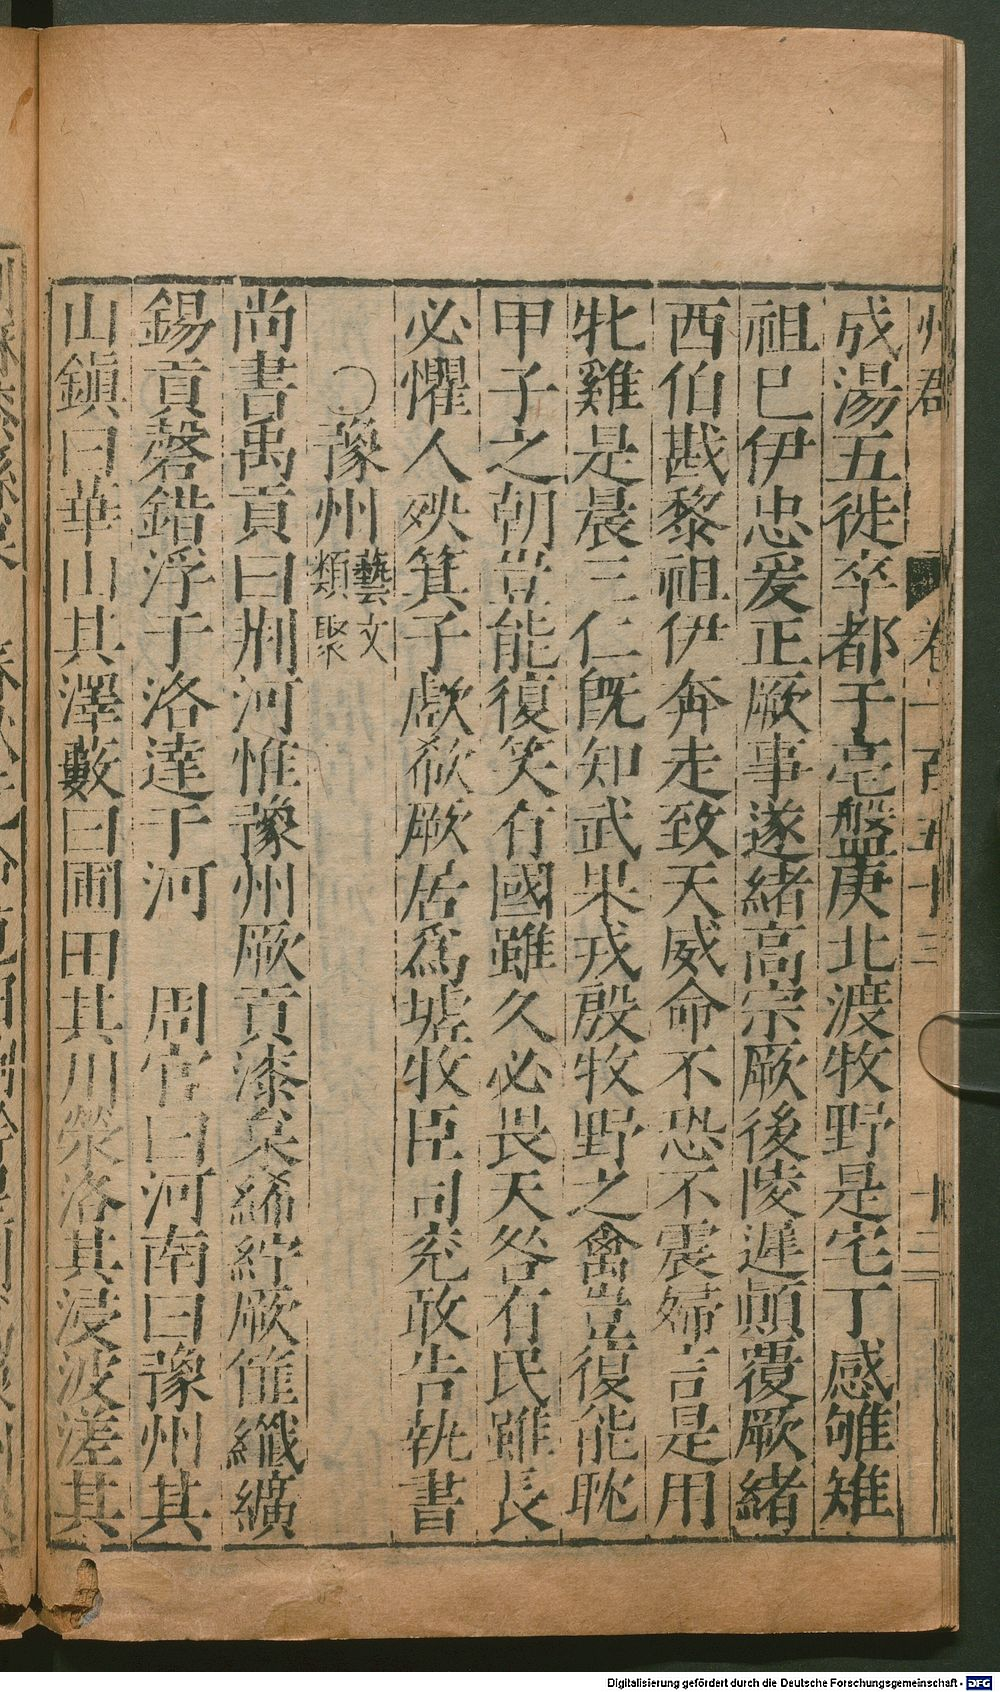 州郡 卷一百五十三 十二
成湯五徙卒都于亳盤庚北渡牧野是宅丁感雊雉
祖巳伊忠爰正厥事遂緒高宗厥後陵遲顛覆厥緒
西伯戡黎祖伊奔走致天威命不恐不震婦言是用
牝雞是晨三仁旣知武果戎殷牧野之禽豈復能耽
甲子之朝豈能復笑有國雖久必畏天咎有民雖長
必懼人殃箕子歔欷厥居爲墟牧臣司兖敢告執書
〇豫州藝文類聚
尚書禹貢曰荆河惟豫州厥貢漆枲絺紵厥筐纖纊
錫貢磬錯浮于洛達于河 周官曰河南曰豫州其
山鎭曰華山其澤藪曰圃田其川滎洛其浸波溠其
Digitalisierung gefördert durch die Deutsche Forschungsgemeinschaft - DFG